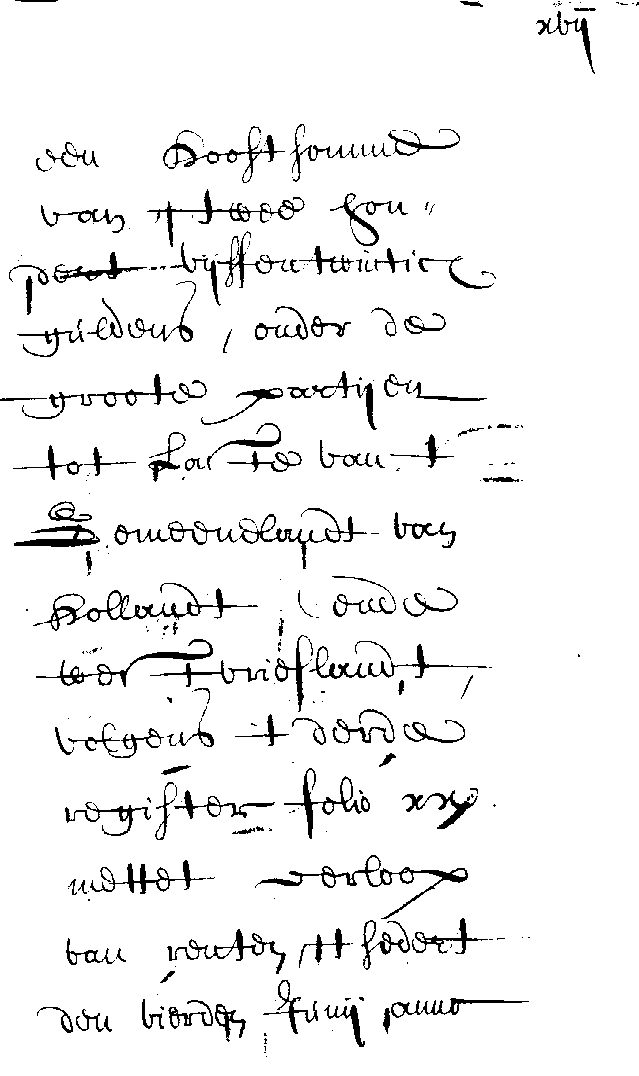 xvij
een Hooftsomme
van twee hon„
dert vijffentwintich
guldens, onder de
groote partijen
tot Laste van t
Gemeenelandt van
Hollandt ende
westvrieslandt,
volgens t derde
register folio xx
mettet verloop
van renten, tsedert
den vierden Junij anno